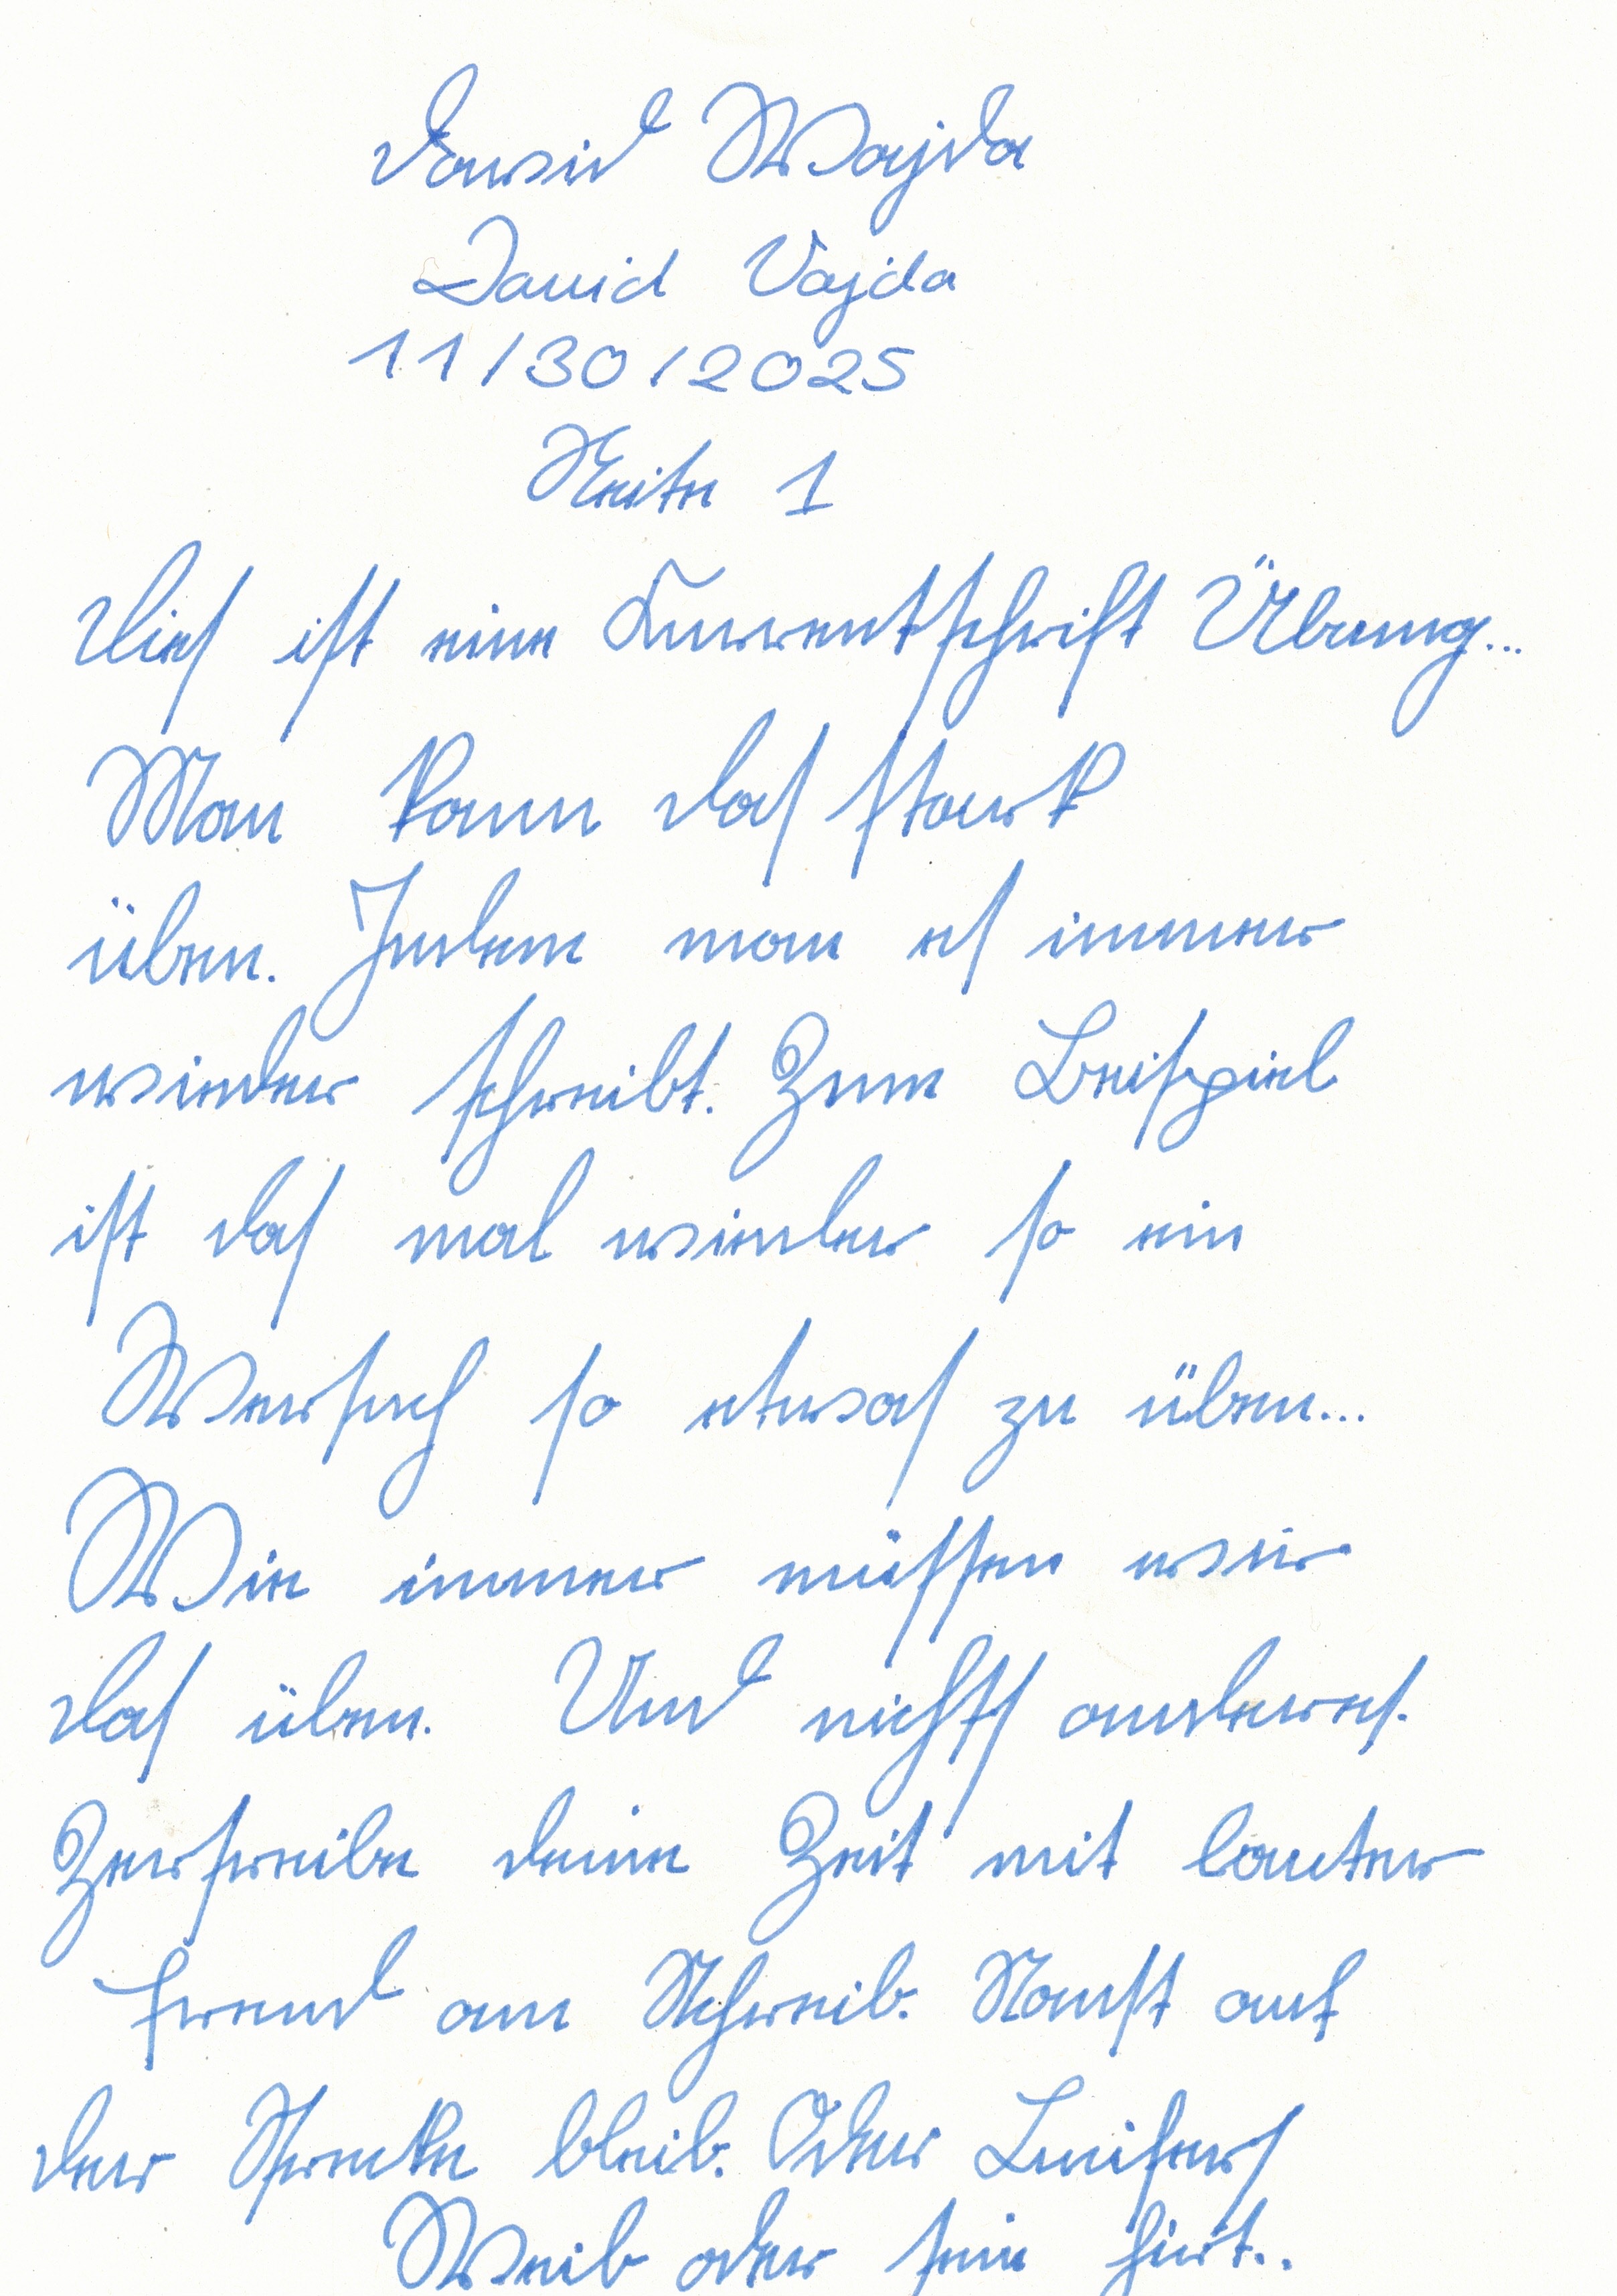 David Vajda
David Vajda
11/30/2025
Seite 1
Dies ist eine Kurrentschrift Übung...
Man kann das stark
üben. Indem man es immer
wieder schreibt. Zum Beispiel
ist das mal wieder so ein
Versuch so etwas zu üben...
Wie immer müssen wir
das üben. Und nichts anderes.
deine Zeit mit lauter
Freud am Schreib. auf
der Strecke bleib. Oder Lucifers
Weib oder sein